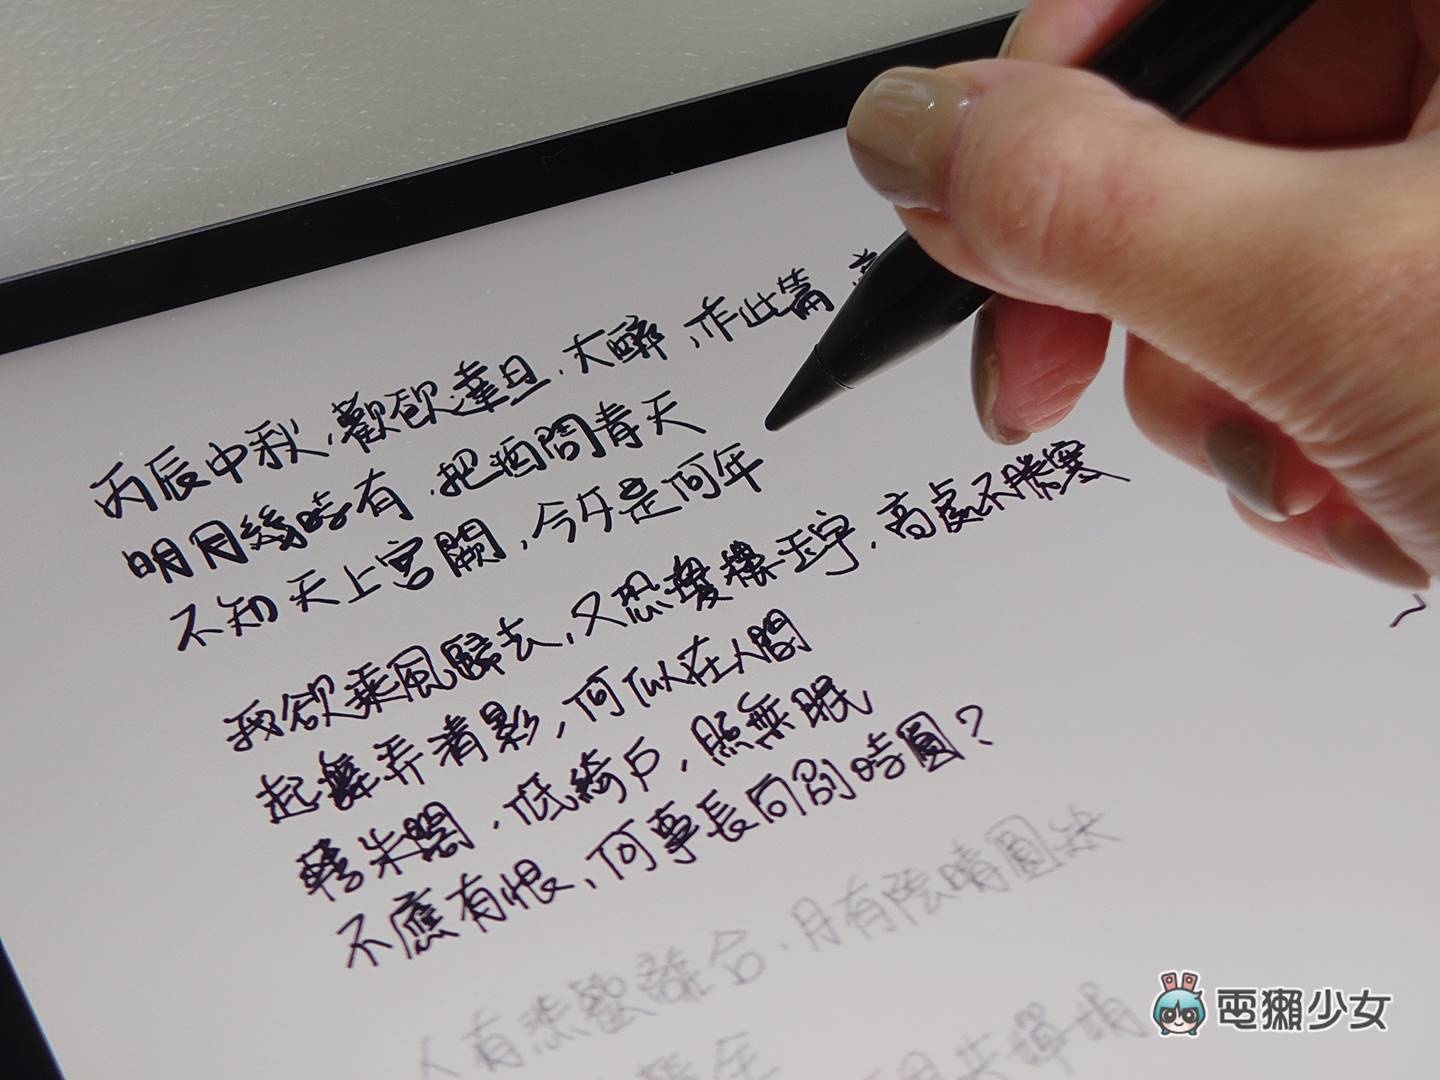 丙辰中秋，歡飲達旦，大醉，作此篇，
明月幾時有，把酒問青天
不知天上宮闕，今夕是何年
我欲乘風歸去，又恐瓊樓玉宇，高處不勝寒
起舞弄清影，何似在人間
轉朱閣，低綺戶，照無眠
不應有恨，何事長向別時圓？
人有悲歡離合，月有陰晴圓缺
電獺少女